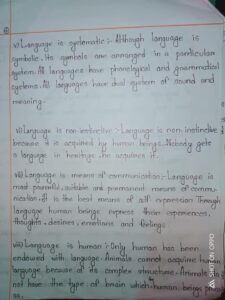 v) Language is systematic :- Although language is
symbolic. Its symbols are arranged in a particular
system. All languages have phonological and grammatical
systems. All languages have dual system of sound and
meaning.
vi) Language is non-instinctive :- Language is non-instinctive
because it is acquired by human beings. Nobody gets
a language in heritage, he acquires it.
vii) Language is means of communication:- Language is
most powerful, suitable and permanent means of commu-
nication. It is the best means of self expression. Through
language human beings express their experiences,
thoughts, desires, emotions and feelings.
viii) Language is human :- Only human has been
endowed with language. Animals cannot acquire human
language because of its complex structure. Animals do
not have the type of brain which human beings
SHOT ON OPPO